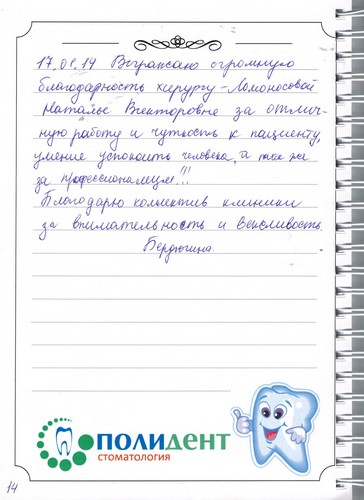 17.01.14 Выражаю огромную
благодарность хирургу - Ломоносовой
Наталье Викторовне за отлич-
ную работу и чуткость к пациенту,
умение успокоить человека, а так же
за профессионализм!!!
Благодарю коллектив клиники
за внимательность и вежливость.
Бердюгина.
ПОЛИДЕНТ
СТОМАТОЛОГИЯ
14